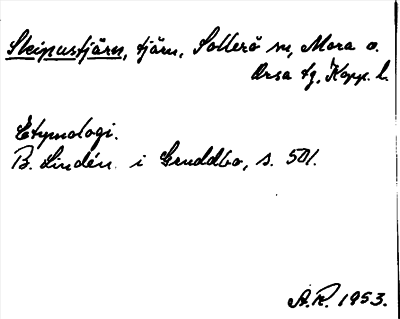 Skipustjärn, tjärn, Sollerö sn, Mora o.
Orsa tg, Kopp. l.
Etymologi.
B. Lindén i Gruddbo, s. 501.
A.R. 1953.